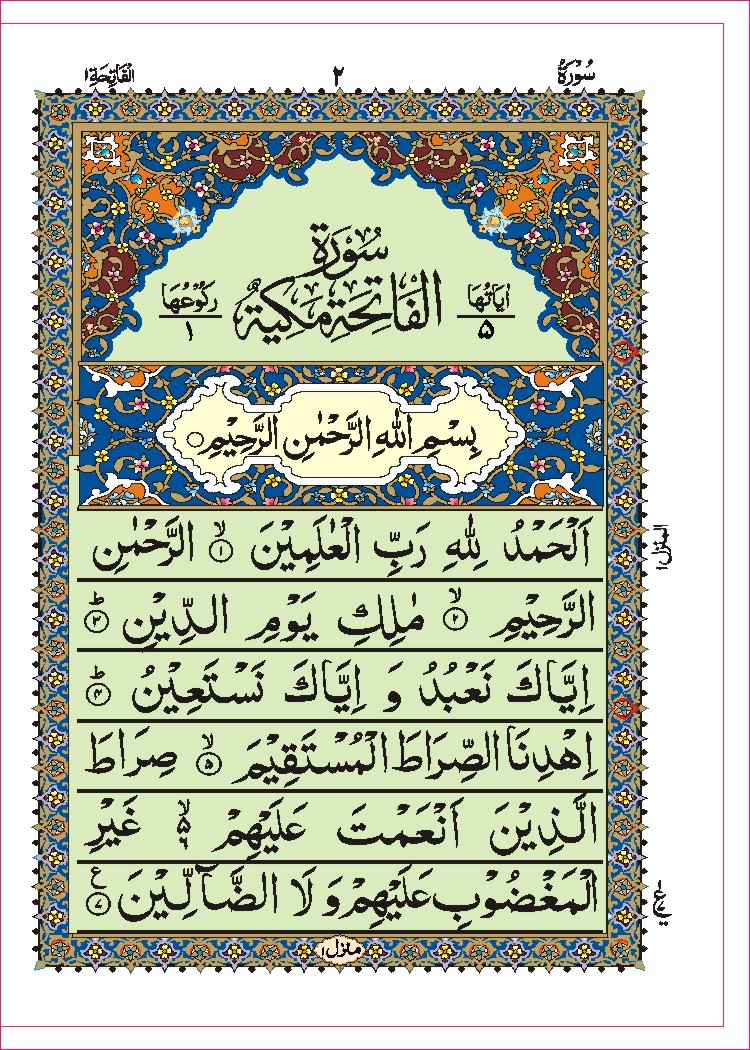 سُوْرَةُ
٢
الْفَاتِحَةِ ١
سُوْرَةُ
اٰيَاتُهَا
الْفَاتِحَةِ مَكِّيَّةٌ
رُكُوْعُهَا
۵
١
بِسْمِ اللّٰهِ الرَّحْمٰنِ الرَّحِيْمِ ○
اَلْحَمْدُ لِلّٰهِ رَبِّ الْعٰلَمِيْنَ ۙ ١ الرَّحْمٰنِ
الرَّحِيْمِ ۙ ٢ مٰلِكِ يَوْمِ الدِّيْنِ ؕ ٣
اِيَّاكَ نَعْبُدُ وَ اِيَّاكَ نَسْتَعِيْنُ ؕ ۴
اِهْدِنَا الصِّرَاطَ الْمُسْتَقِيْمَ ۙ ۵ صِرَاطَ
الَّذِيْنَ اَنْعَمْتَ عَلَيْهِمْ ۙ ۵ ۶ غَيْرِ
الْمَغْضُوْبِ عَلَيْهِمْ وَ لَا الضَّآلِّيْنَ ٧ ع
المنزل ١
منزل ١